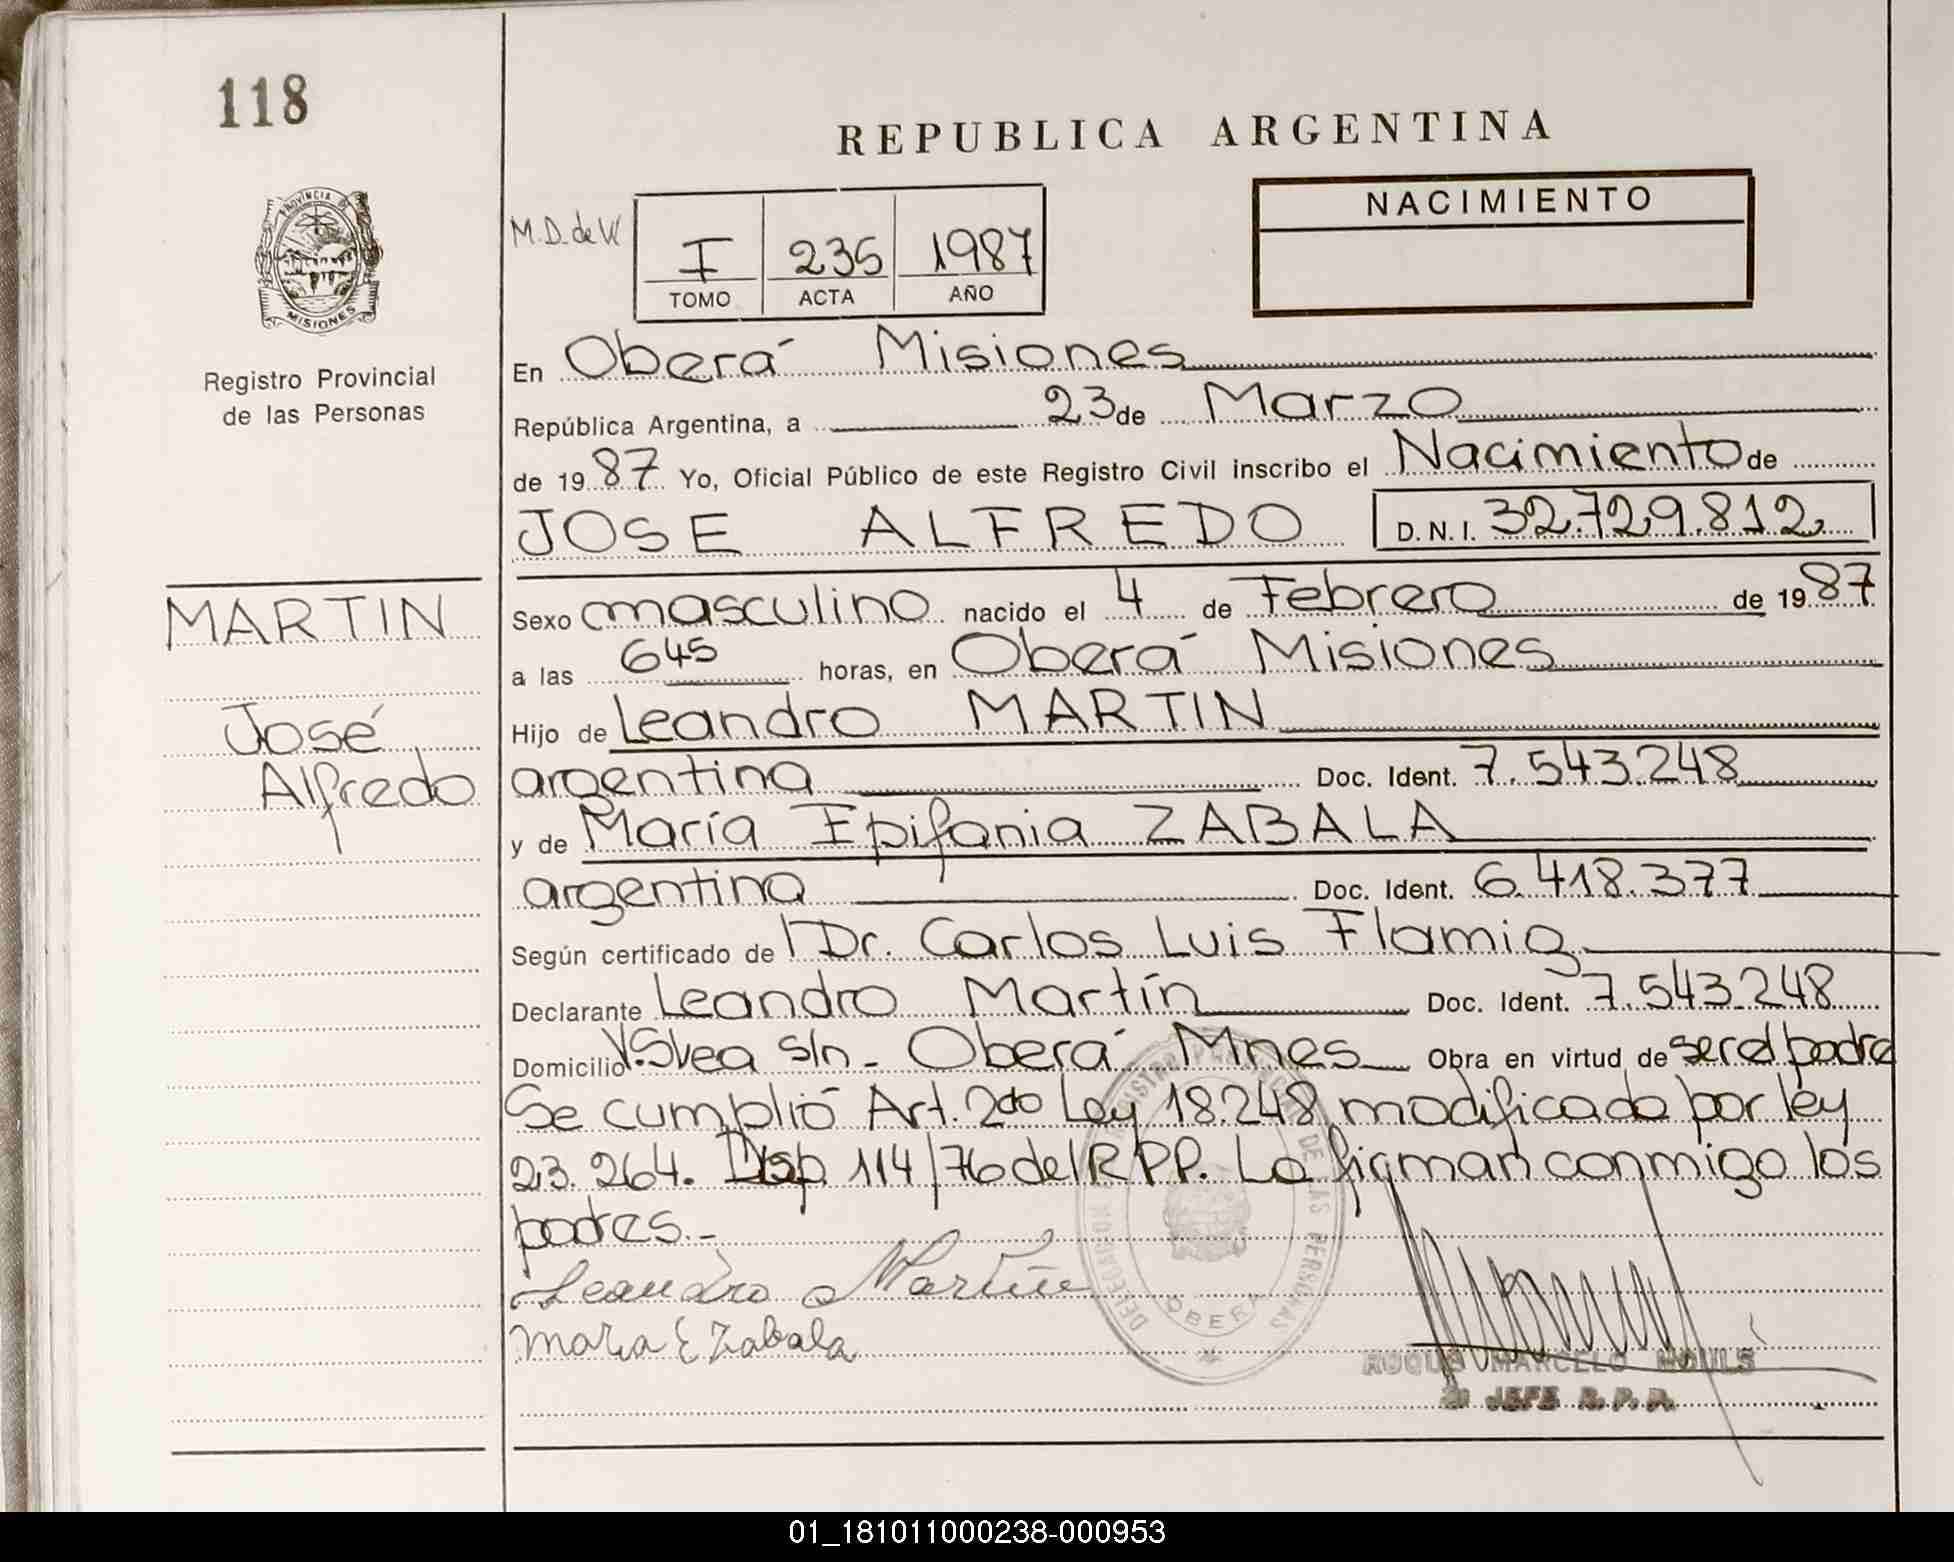 118
REPUBLICA ARGENTINA
PROVINCIA DE MISIONES
NACIMIENTO
M.D. de W
I 235 1987
TOMO ACTA AÑO
Registro Provincial
de las Personas
En Oberá Misiones
República Argentina, a 23 de Marzo
de 1987 Yo, Oficial Público de este Registro Civil inscribo el Nacimiento de
JOSE ALFREDO D.N.I. 32.729.812
MARTIN
José
Alfredo
Sexo masculino nacido el 4 de Febrero de 1987
a las 645 horas, en Oberá Misiones
Hijo de Leandro MARTIN
argentina Doc. Ident. 7.543.248
y de María Epifania ZABALA
argentina Doc. Ident. 6.418.377
Según certificado de Dr. Carlos Luis Flamig
Declarante Leandro Martín Doc. Ident. 7.543.248
Domicilio V.Svea s/n - Oberá Mnes Obra en virtud de ser el padre
Se cumplió Art. 2do Ley 18.248 modificada por ley
23.264. Disp. 114/76 del RPP. La firman conmigo los
padres.-
Leandro Martin
Maria E Zabala
OBERA
ROQUE MARCELO
JEFE R.P.P.
01_181011000238-000953